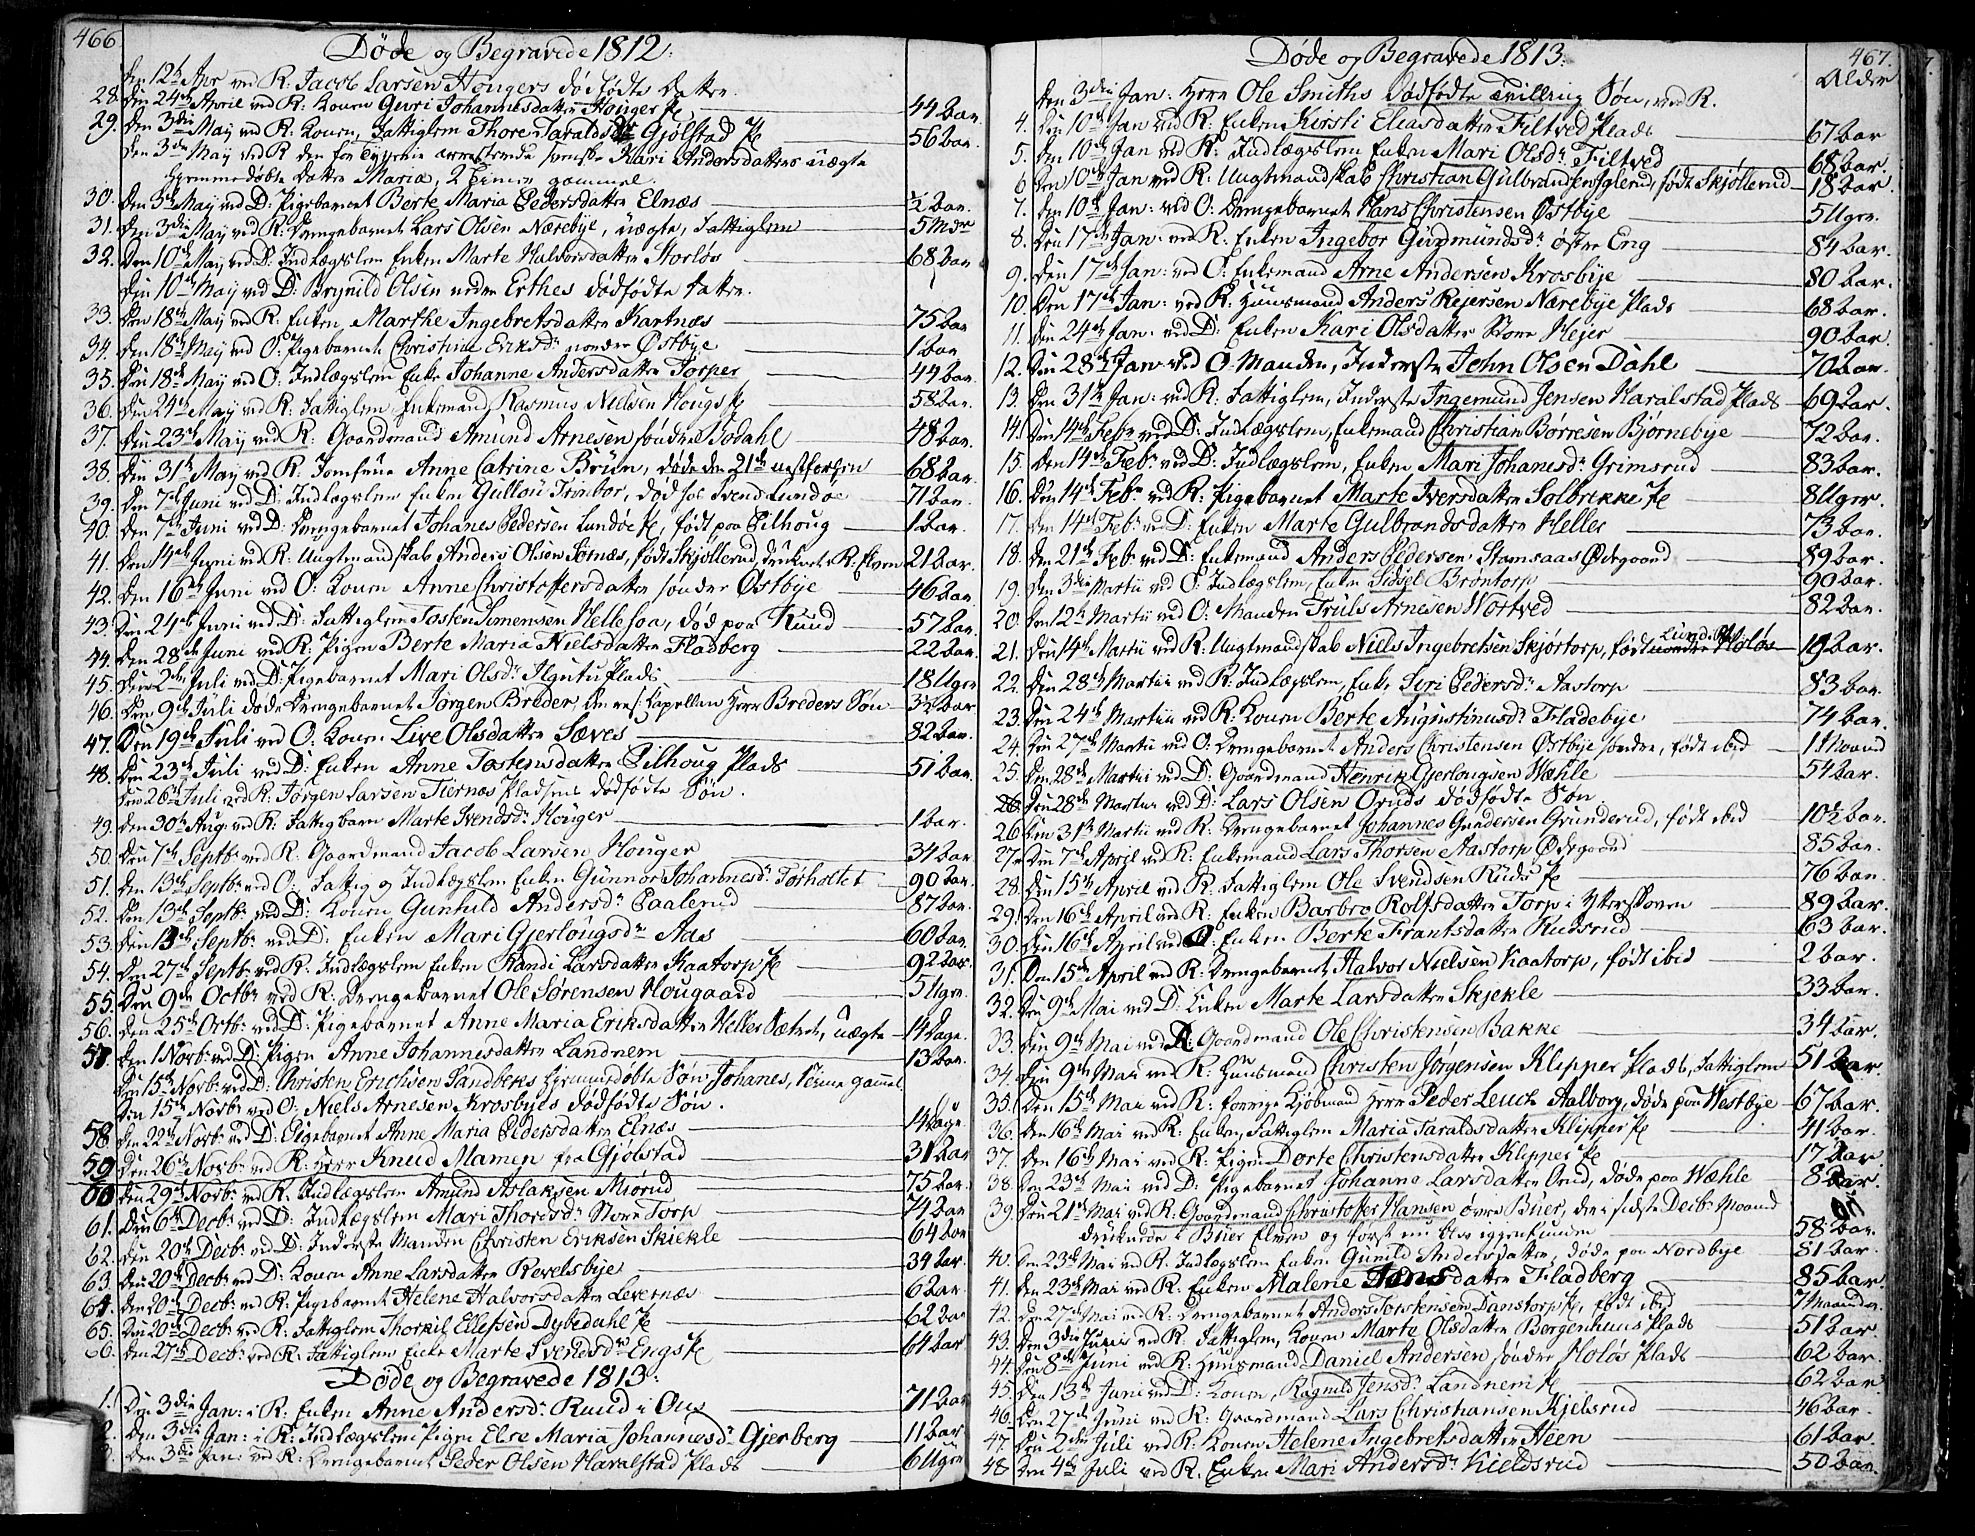 466
Døde og Begravede 1812:
den 12te Apr ved R: Jacob Larsen Hougers dødfødte Datter.
28. Den 24de April ved R: Konen Guri Johannesdatter Houger Pe 44 Aar.
29. Den 3die May ved R: Konen, Fattiglem Thore Taraldsdr Gjølstad Pe 56 Aar.
den 3die May ved R den for Tyverie arresterede Kari Andersdatters uægte
hjemmedøbte Datter Maria, 2 Timer gammel.
30. Den 3die May ved D: Pigebarnet Berte Maria Pedersdatter Elnæs ½ Aar.
31. Den 3die May ved R: Drengebarnet Lars Olsen Nærebye, uægte, Fattiglem 5 Mdr
32. Den 10de May ved D: Indlægslem Enken Marte Halvorsdatter Storløs 68 Aar
Den 10de May ved D: Brynild Olsen nedre Erthes dødfødte Datter.
33. Den 18de May ved R: Enken, Marthe Ingebretsdatter Kartnæs 75 Aar
34. Den 18de May ved O: Pigebarnet Christine Eriksdr nordre Østbye 1 Aar
35. Den 18de May ved O: Indlægslem Enke Johanne Andersdatter Torper 44 Aar.
36. Den 24de May ved R: Fattiglem Enkemand Rasmus Nielsen Hougs Pe 58 Aar.
37. Den 23de May ved R: Gaardmand Amund Arnesen søndre Sodahl 48 Aar.
38. Den 31te May ved R. Jomfrue Anne Catrine Brün, døde den 21de næstforhen 68 Aar.
39. Den 7de Juni ved D: Indlægslem Enken Gullou Trinbor, død hos Svend Lundøe 71 Aar.
40. Den 7de Juni ved D: Drengebarnet Johanes Pedersen Lundøe Pe, født paa Eilhoug 1 Aar.
41. Den 14de Juni ved R: Ungtmandskab Anders Olsen Sørnæs, født Skjøllerud, druknet R: Elven 21 Aar.
42. Den 16de Juni ved O: Konen Anne Christoffersdatter søndre Østbye 46 Aar.
43. Den 21de Juni ved D: Fattiglem Tosten Simensen Hellesøa, død paa Ruud 57 Aar.
44. Den 28de Juni ved R: Pigen Berte Maria Nielsdatter Fladberg 22 Aar.
45. Den 2den Juli ved D: Pigebarnet Mari Olsdr Plads 18 Uger
46. Den 9de Juli døde Drengebarnet Jørgen Breder, den res: Capellan Herr Breders Søn 3½ Aar
47. Den 19de Juli ved O: Konen Live Olsdatter Sæves 82 Aar.
48. Den 23de Juli ved D: Enken Anne Tostensdatter Eilhoug Plads 51 Aar.
Den 26de Juli ved R: Jørgen Larsen Tiernæs Pladsens dødfødte Søn.
49. Den 30te Aug: ved R: Fattigbarn Marte Svendsdr Houger 1 Aar.
50. Den 7de Septb: ved R: Gaardmand Jacob Larsen Houger 34 Aar.
51. Den 13de Septb: ved O: Fattig og Indlægslem Enken Gunnor Johannesdr Torholtet 90 Aar.
52. Den 13de Septb: ved D: Konen Gunhild Andersdr Paalerud 87 Aar.
53. Den 13de Septb: ved D: Enken Mari Gjerlougsdr Aas 60 Aar.
54. Den 27de Septb: ved R: Indlægslem Enken Randi Larsdatter Kaatorp Pe 92 Aar.
55. Den 9de Octb: ved R: Drengebarnet Ole Sørensen Hougaard 5 Uger.
56. Den 25de Octb: ved D: Pigebarnet Anne Maria Eriksdatter Heller Sætret, uægte 14 Dage.
57 Den 1 Novb: ved D: Pigen Anne Johannesdatter Landnem 13 Aar.
Den 15de Novb: ved D: Christen Erichsen Sandbeks hjemmedøbte Søn: Johanes, 1 Time gamel
Den 15de Novb: ved O: Niels Arnesen Krosbyes dødfødte Søn.
58 Den 22de Novb: ved D: Pigebarnet Anne Maria Pedersdatter Elnæs 14 Dage.
59 Den 26de Novb: ved R: Herr Knud Mamen fra Gjølstad 31 Aar
60 Den 29de Novb: ved R. Indlægslem Amund Aslaksen Miørud 75 Aar.
61. Den 6te Decb: ved D: Indlægslem Mari Thoresdr Store Torp 74 Aar
62. Den 20de Decb: ved D: Inderste Manden Christen Eriksen Skiekle 64 Aar
63 Den 20de Decb: ved D: Konen Anne Larsdatter Revelsbye 34 Aar.
64. Den 20de Decb: ved R: Pigebarnet Helene Halvorsdatter Levernæs 6 Aar.
65. Den 20de Decb: ved R: Fattiglem Thorkil Ellefsen Dybedahl Pe 62 Aar
66. Den 27de Decb: ved R: Fattiglem Enke Marte Svendsdr Engs Pe 64 Aar
Døde og Begravede 1813:
1. Den 3die Jan: i R: Enken Anne Andersdr Ruud i Ous 71 Aar
2. Den 3die Jan: i R: Indlægslem Pigen Else Maria Johannesdr Gjerberg 11 Aar
3. Den 3die Jan: ved R: Drengebarnet Peder Olsen Haralstad Plads 6 Uger
467.
Døde og Begravede 1813:
Alder
Den 3die Jan: Herr Ole Smiths dødfødte tvilling Søn, ved R.
4. Den 10de Jan ved R: Enken Kirsti Eliasdatter Filtved Plads 67 Aar
5. Den 10de Jan ved R: Indlægslem Enken Mari Olsdr Filtved 68 Aar.
6 Den 10de Jan ved R: Ungtmandskab Christian Gulbrandsen Iglerud, født Skjøllerud 18 Aar.
7. Den 10de Jan: ved O: Drengebarnet Hans Christensen Østbye 5 Uger.
8. Den 17de Jan: ved R: Enken Ingebor Gudmundsdr østre Eng 84 Aar.
9. Den 17de Jan: ved O: Enkemand Arne Andersen Krosbye 80 Aar.
10. Den 17de Jan: ved R: Huusmand Anders Rejersen Nærebye Plads 68 Aar.
11. Den 24de Jan: ved D: Enken Kari Olsdatter Store Hejer 90 Aar.
12. Den 28de Jan ved O Manden, Inderste John Olsen Dahl 70 Aar.
13. Den 31te Jan: ved R: Fattiglem, Inderste Ingemund Jensen Haralstad Plads 69 Aar.
14. Den 14de Febr ved D: Indlægslem, Enkemand Christian Børresen Bjørnebye 72 Aar.
15. Den 14de Febr: ved D: Indlægslem, Enken Mari Johanesdr Grimsrud 83 Aar.
16. Den 14de Febr: ved R: Pigebarnet Marte Iversdatter Solbrekke Pe 8 Uger.
17. Den 14de Febr: ved D: Enken Marte Gulbrandsdatter Heller 73 Aar.
18. Den 21de Feb: ved D: Enkemand Anders Pedersen Stamsaas Ødegaard 89 Aar.
19. Den 3die Martii ved O: Indlægslem, Enke Sidsel Brøntorp 90 Aar.
20. Den 12te Martii ved O: Manden Truls Arnesen Nortved 82 Aar.
21. Den 14de Martii ved R: Ungtmandskab Niels Ingebretsen Skjørtorp, født nordre Holøs 19 Aar.
22. Den 28de Martii ved R: Indlægslem, Enke Siri Pedersdr Aastorp 83 Aar.
23. Den 24de Martii ved R: Konen Berte Augustinusdr Fladebye 74 Aar.
24. Den 27de Martii ved O: Drengebarnet Anders Christensen Østbye søndre, født ibid 1 Maaned
25. Den 28de Martii ved D: Gaardmand Henrik Gjerlougsen Wæhle 54 Aar.
26 Den 28de Martii ved D: Lars Olsen Oruds dødfødte Søn
26. Den 31te Martii ved R: Drengebarnet Johannes Gundersen Grunderud, født ibid 10½ Aar.
27. Den 7de April ved R: Enkemand Lars Thorsen Aastorp Ødegaard 85 Aar.
28. Den 15de April ved R: Fattiglem Ole Svendsen Ruds Pe 76 Aar.
29. Den 16de April ved R: Enken Barbro Rolfsdatter Torp i Ytterskoven 89 Aar.
30. Den 16de April ved O: Enken Berte Frantsdatter Rudsrud 63 Aar.
31. Den 15de April ved R: Drengebarnet Halvor Nielsen Kaatorp, født ibid 2 Aar.
32. Den 9de Mai ved D: Enken Marte Larsdatter Skjekle 33 Aar.
33. Den 9de Mai ved D: Gaardmand Ole Christensen Bakke 34 Aar.
34. Den 9de Mai ved R: Huusmand Christen Jørgensen Klipper Plads, Fattiglem 51 Aar.
35. Den 15de Mai ved R: forrige Kjøbmand Herr Peder Leuch Aalborg, døde paa Westbye 67 Aar.
36. Den 16de Mai ved R: Enken, Fattiglem Maria Taraldsdatter Klipper Pe 41 Aar.
37. Den 16de Mai ved R: Pigen Dorte Christensdatter Klepper Pe 17 Aar
38. Den 23de Mai ved D: Pigebarnet Johanne Larsdatter Orud, døde paa Wæhle 8 Aar.
39. Den 21de Mai ved R: Gaardmand Christoffer Hansen øvre Buer, der i sidste Decbr Maaned
druknede i Buer Elven og først nu blev igjenfunden 58 Aar.
40. Den 23de Mai ved R. Indlægslem Enken Gunild Andersdatter, døde paa Nordbye 81 Aar.
41. Den 23de Mai ved R: Enken Malene Jensdatter Fladberg 85 Aar.
42. Den 27de Mai ved R: Drengebarnet Anders Torstensen Danstorp Pe, født ibid 7 Maaneder
43. Den 3die Junii ved R: Fattiglem, Konen Marte Olsdatter Bergenhuus Plads 51 Aar.
44. Den 8de Juni ved R: Huusmand Daniel Andersen søndre Holøs Plads 62 Aar.
45. Den 13de Juni ved D: Konen, Ragnild Jensdr Landnem Pe 62 Aar.
46. Den 27de Juni ved R: Gaardmand Lars Christiansen Kjelsrud 46 Aar.
47. Den 2den Juli ved R: Konen Helene Ingebretsdatter Heen 61 Aar.
48 Den 4de Juli ved R. Enken Mari Andersdr Kieldsrud 50 Aar.